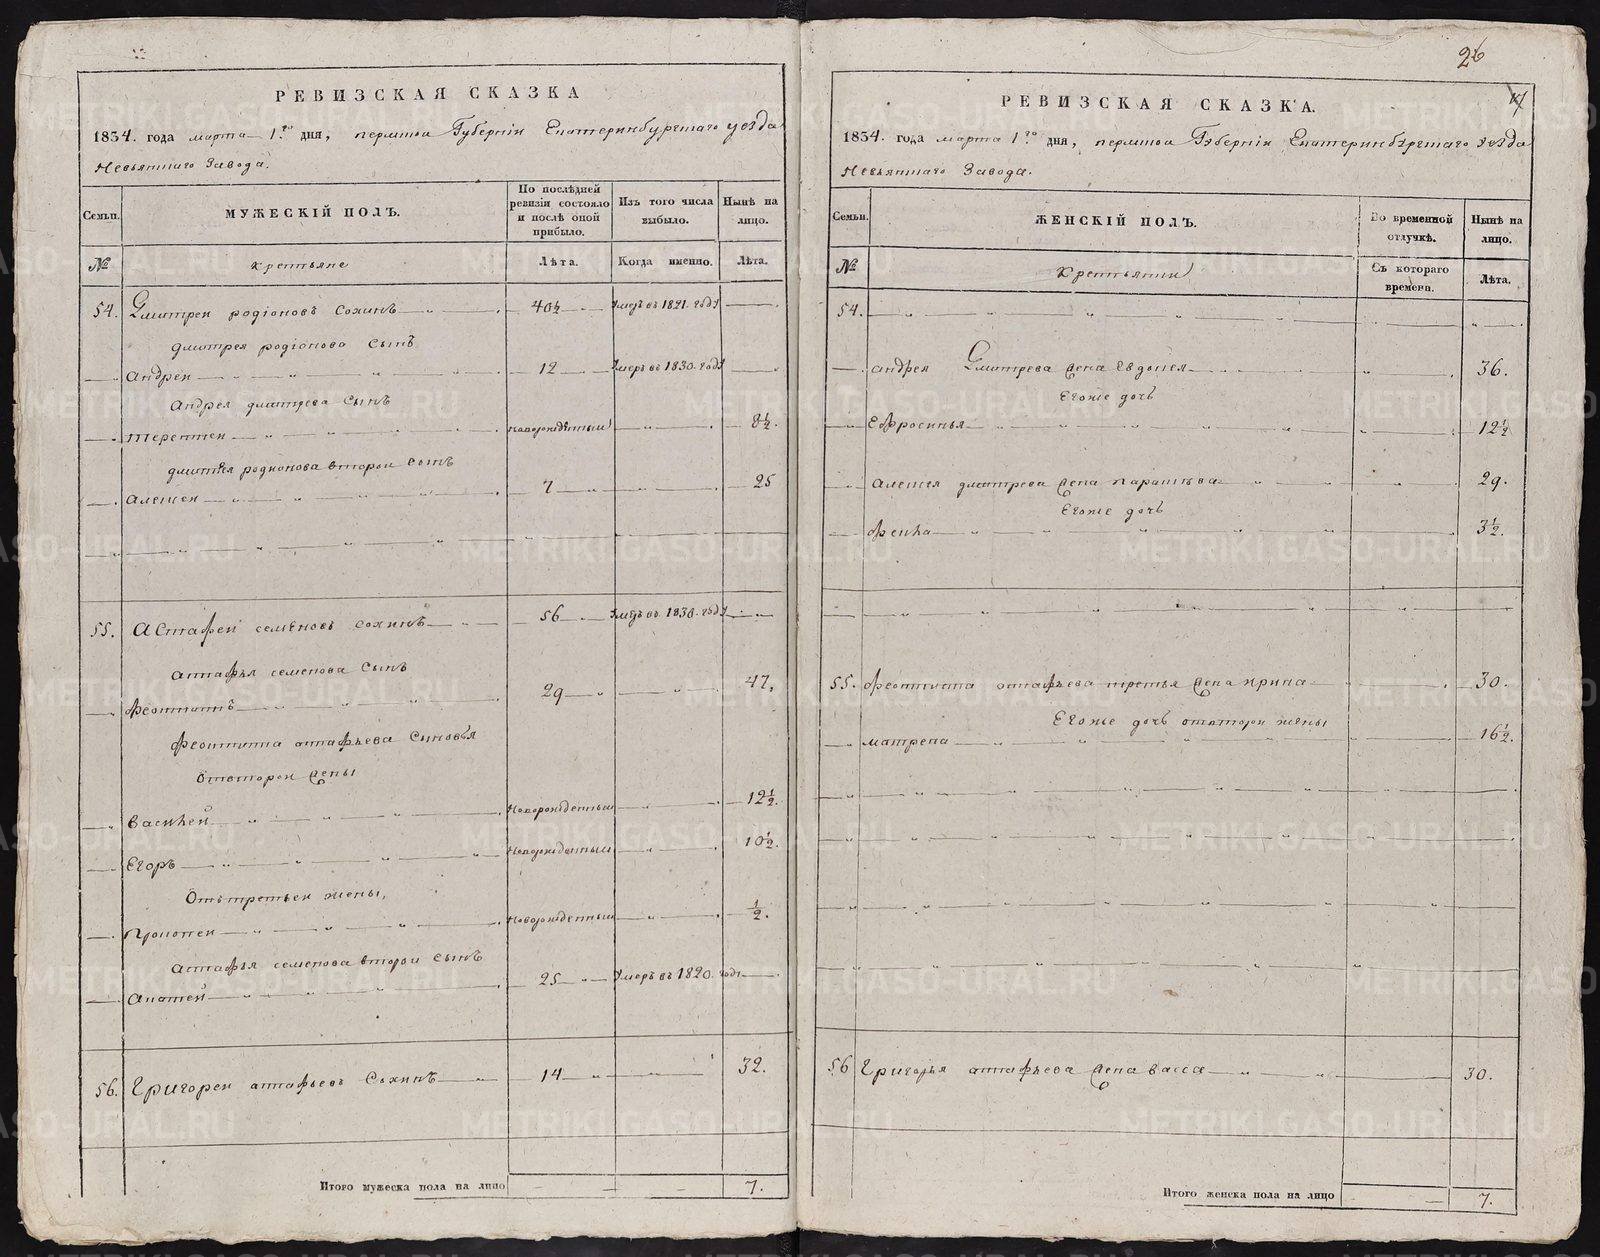 26
РЕВИЗСКАЯ СКАЗКА
1834. года марта 1го дня, пермскои Губерніи Екатеринбургскаго уезда
Невьянскаго Завода.
Семьи. МУЖЕСКІЙ ПОЛЪ. По послѣдней ревизіи состояло и послѣ оной прибыло. Изъ того числа выбыло. Нынѣ на лицо.
№ крестьяне Лѣта. Когда именно. Лѣта.
54. Дмитреи родіоновъ Сохинъ 40½ Умеръ въ 1821. году
дмитрея родіонова Сынъ
андреи 12 Умеръ въ 1830. году
Андрея дмитрева Сынъ
терентеи новорожденныи 8½.
дмитрея родионова второи Сынъ
алексеи 7 25
55. Астафеи семеновъ сохинъ 56 Умеръ въ 1830. году
астафья семенова Сынъ
феоктистъ 29 47,
феоктиста астафьева Сыновья
отвторои жены
василей Новорожденныи 12½.
Егоръ Новорожденныи 10½.
Отътретьеи жены,
прокопеи Новорожденныи ½.
астафья семенова второи сынъ
Ипатей 25 Умеръ въ 1820. году
56. Григореи астафьевъ Сохинъ 14 32.
Итого мужеска пола на лицо 7.
РЕВИЗСКАЯ СКАЗКА.
1834. года марта 1го дня, пермскои Губерніи Екатеринбургскаго уезда
Невьянскаго Завода.
Семьи. ЖЕНСКІЙ ПОЛЪ. Во временной отлучкѣ. Нынѣ на лицо.
№ крестьянки Съ котораго времени. Лѣта.
54.
андрея Дмитрева жена Евдокея 36.
Егоже дочь
Ефросинья 12½
алексея дмитрева жена парасковья 29.
Егоже дочь
фекла 3½.
55. феоктиста астафьева третья жена Ирина 30.
Егоже дочь отвторои жены
матрена 16½.
56 Григорья астафьева жена васса 30.
Итого женска пола на лицо 7.